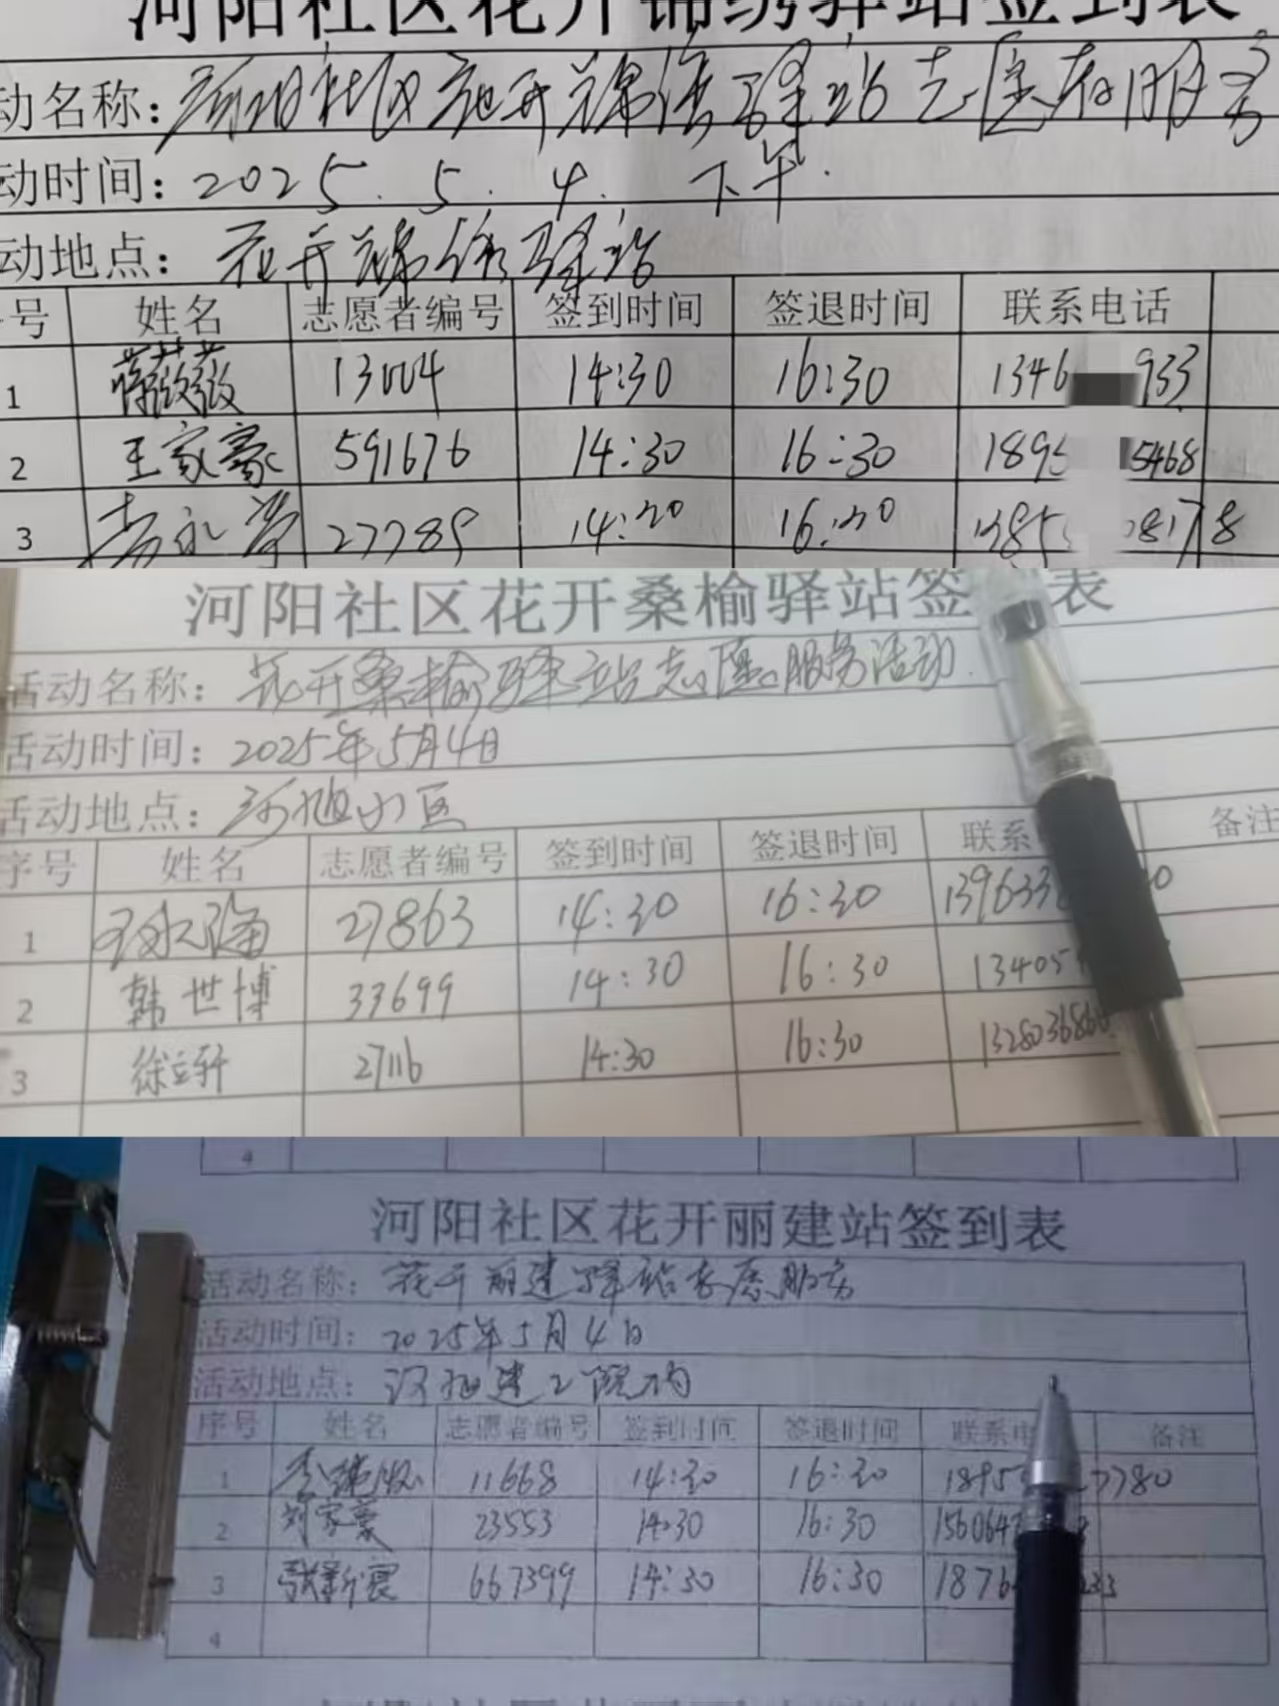 河阳社区花开锦绣驿站签到表
动名称：河阳社区花开锦绣驿站志愿者服务
动时间：2025.5.4.下午.
动地点：花开锦绣驿站
号 姓名 志愿者编号 签到时间 签退时间 联系电话
1 薇薇 13004 14:30 16:30 1346 933
2 王家豪 591676 14:30 16:30 1895 5468
3 27789 14:30 16:30 1385 8178
河阳社区花开桑榆驿站签 表
活动名称：花开桑榆驿站志愿服务活动.
活动时间：2025年5月4日
活动地点：河旭小区
序号 姓名 志愿者编号 签到时间 签退时间 联系 备注
1 27863 14:30 16:30 139633 0
2 韩世博 33699 14:30 16:30 13405
3 徐立轩 27116 14:30 16:30 1328036866
4
河阳社区花开丽建站签到表
活动名称：花开丽建驿站志愿服务
活动时间：2025年5月4日
活动地点：河旭建工院内
序号 姓名 志愿者编号 签到时间 签退时间 联系电 备注
1 11668 14:30 16:30 1895 7780
2 刘家豪 23553 14:30 16:30 156064
3 张新震 667399 14:30 16:30 1876 33
4